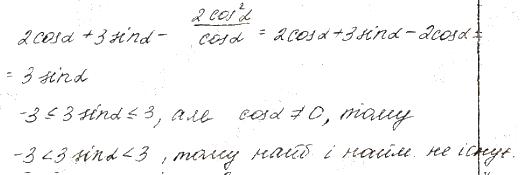 2cosα + 3sinα - 2cos²α/cosα = 2cosα + 3sinα - 2cosα =
= 3 sinα
-3 ≤ 3 sinα ≤ 3, але cosα ≠ 0, тому
-3 < 3 sinα < 3, тому найб і найм. не існує.